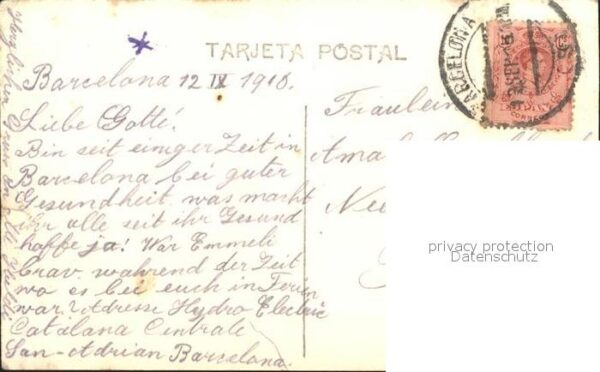 TARJETA POSTAL
BARCELONA
Barcelona 12 IX 1916.
Liebe Gotte!
Bin seit einiger Zeit in
Barcelona bei guter
Gesundheit. was macht
ihr alle seit ihr Gesund
hoffe ja! War Emmeli
brav, während der Zeit
wo es bei euch in Ferien
war? Adresse Hydro Electric
Catalana Centrale
San-Adrian Barcelona.
Fräulein
privacy protection
Datenschutz